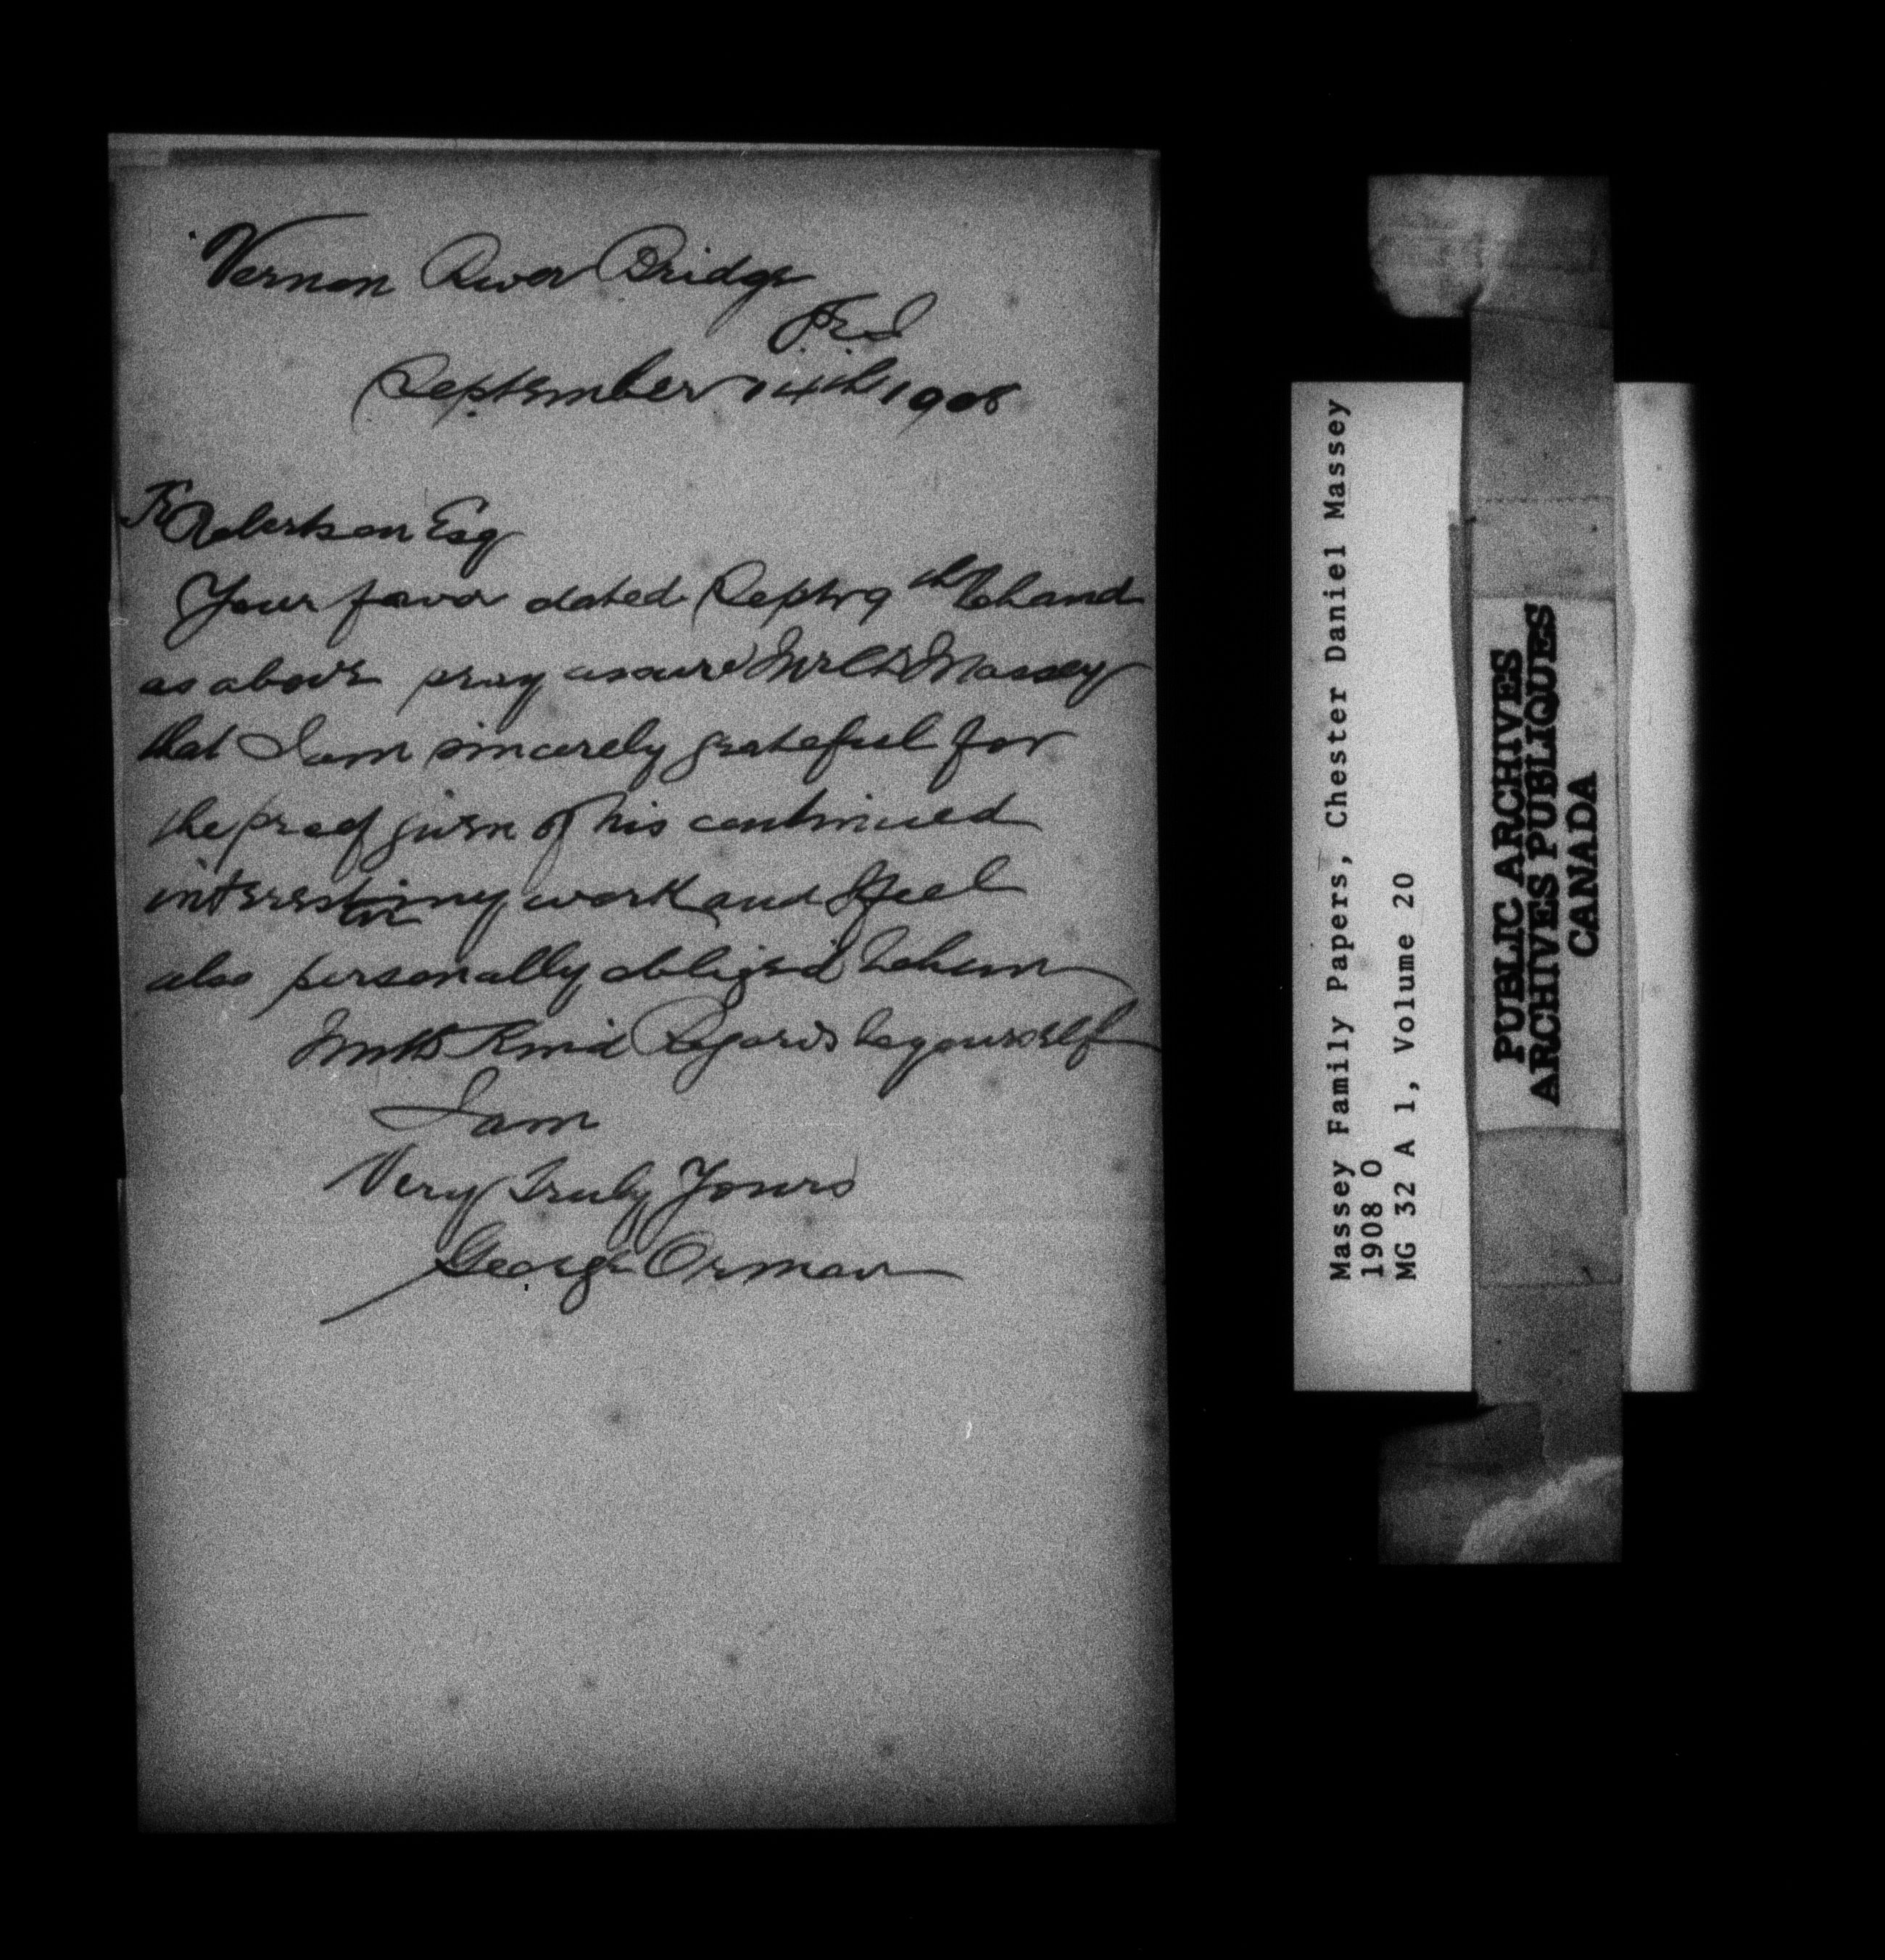 Vernon River Bridge
P.E.I
September 14th 1908
Robertson Esq
Your favor dated Sept 9th to hand
as above pray assure Mr C D Massey
that I am sincerely grateful for
the proof given of his continued
interest in my work and I feel
also personally obliged to him
With Kind Regards to yourself
I am
Very Truly Yours
George Orman
Massey Family Papers, Chester Daniel Massey
1908 O
MG 32 A 1, Volume 20
PUBLIC ARCHIVES
ARCHIVES PUBLIQUES
CANADA